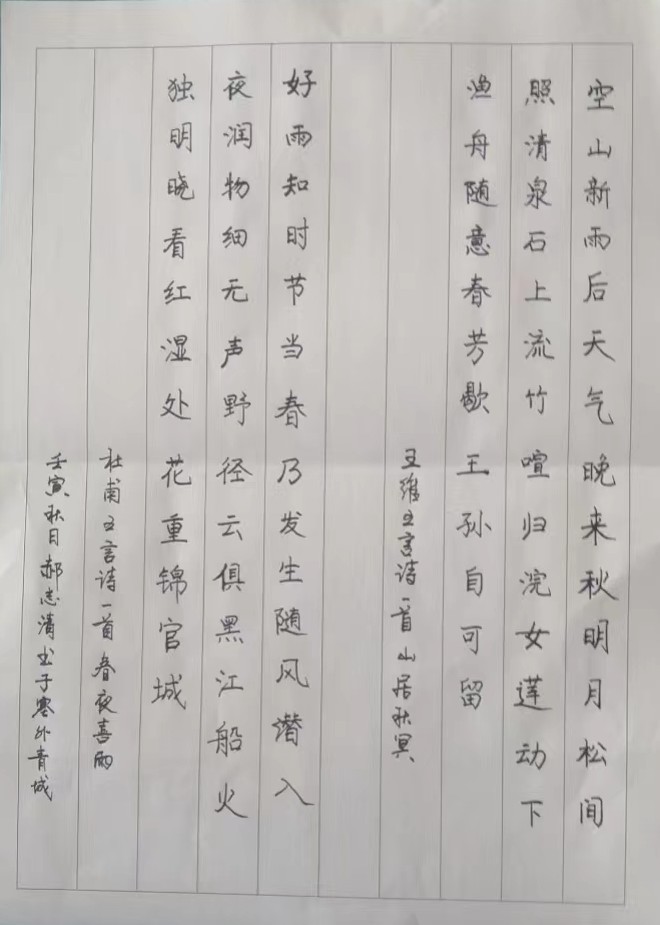 空山新雨后天气晚来秋明月松间
照清泉石上流竹喧归浣女莲动下
渔舟随意春芳歇王孙自可留
王维五言诗一首山居秋冥
好雨知时节当春乃发生随风潜入
夜润物细无声野径云俱黑江船火
独明晓看红湿处花重锦官城
杜甫五言诗一首春夜喜雨
壬寅秋日郝志清书于塞外青城